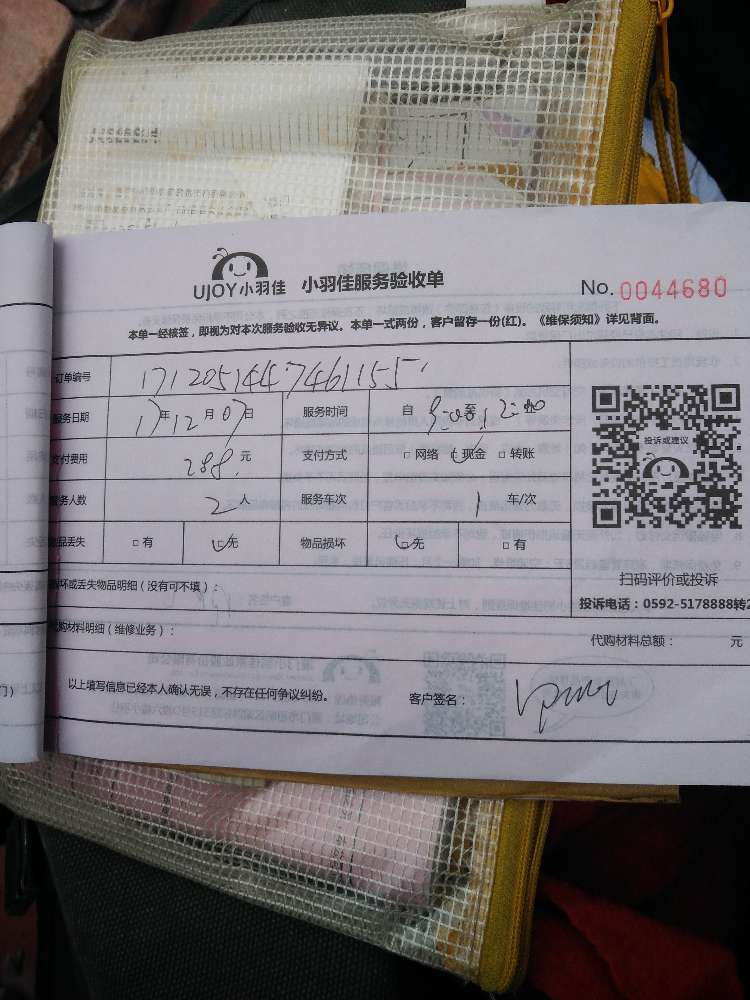 UJOY小羽佳 小羽佳服务验收单 No. 0044680
本单一经核签，即视为对本次服务验收无异议。本单一式两份，客户留存一份(红)。《维保须知》详见背面。
订单编号 171205144746115551
服务日期 17年12月07日 服务时间 自 至 12:00
支付费用 288.元 支付方式 □网络 现金 □转账
服务人数 2人 服务车次 1 车/次
物品丢失 □有 无 物品损坏 无 □有
投诉或建议
扫码评价或投诉
投诉电话：0592-5178888转2
损坏或丢失物品明细（没有可不填）：
代购材料明细（维修业务）： 代购材料总额： 元
以上填写信息已经本人确认无误，不存在任何争议纠纷。 客户签名：